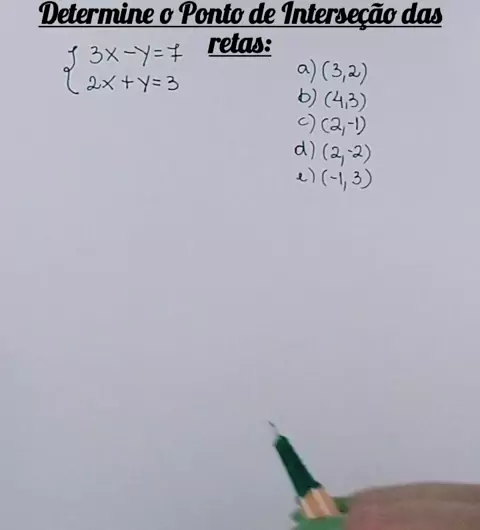 Determine o Ponto de Interseção das
retas:
3x-y=7
2x+y=3
a) (3,2)
b) (4,3)
c) (2,-1)
d) (2,-2)
e) (-1,3)